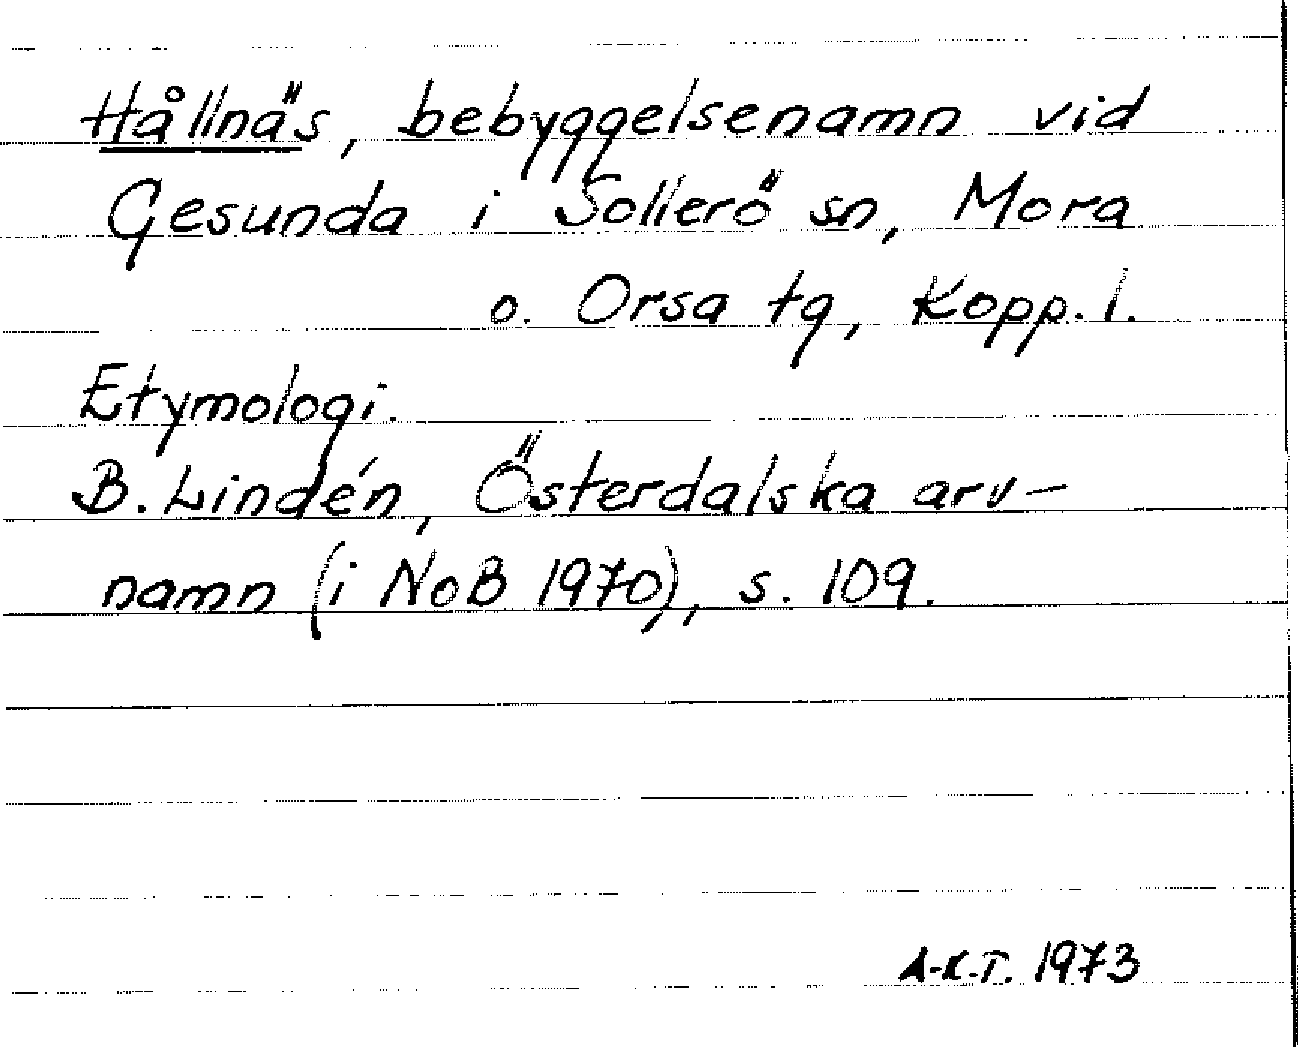 Hållnäs, bebyggelsenamn vid
Gesunda i Sollerö sn, Mora
o. Orsa tg, Kopp. l.
Etymologi.
B. Lindén, Österdalska arv-
namn (i NoB 1970), s. 109.
A-K.T. 1973